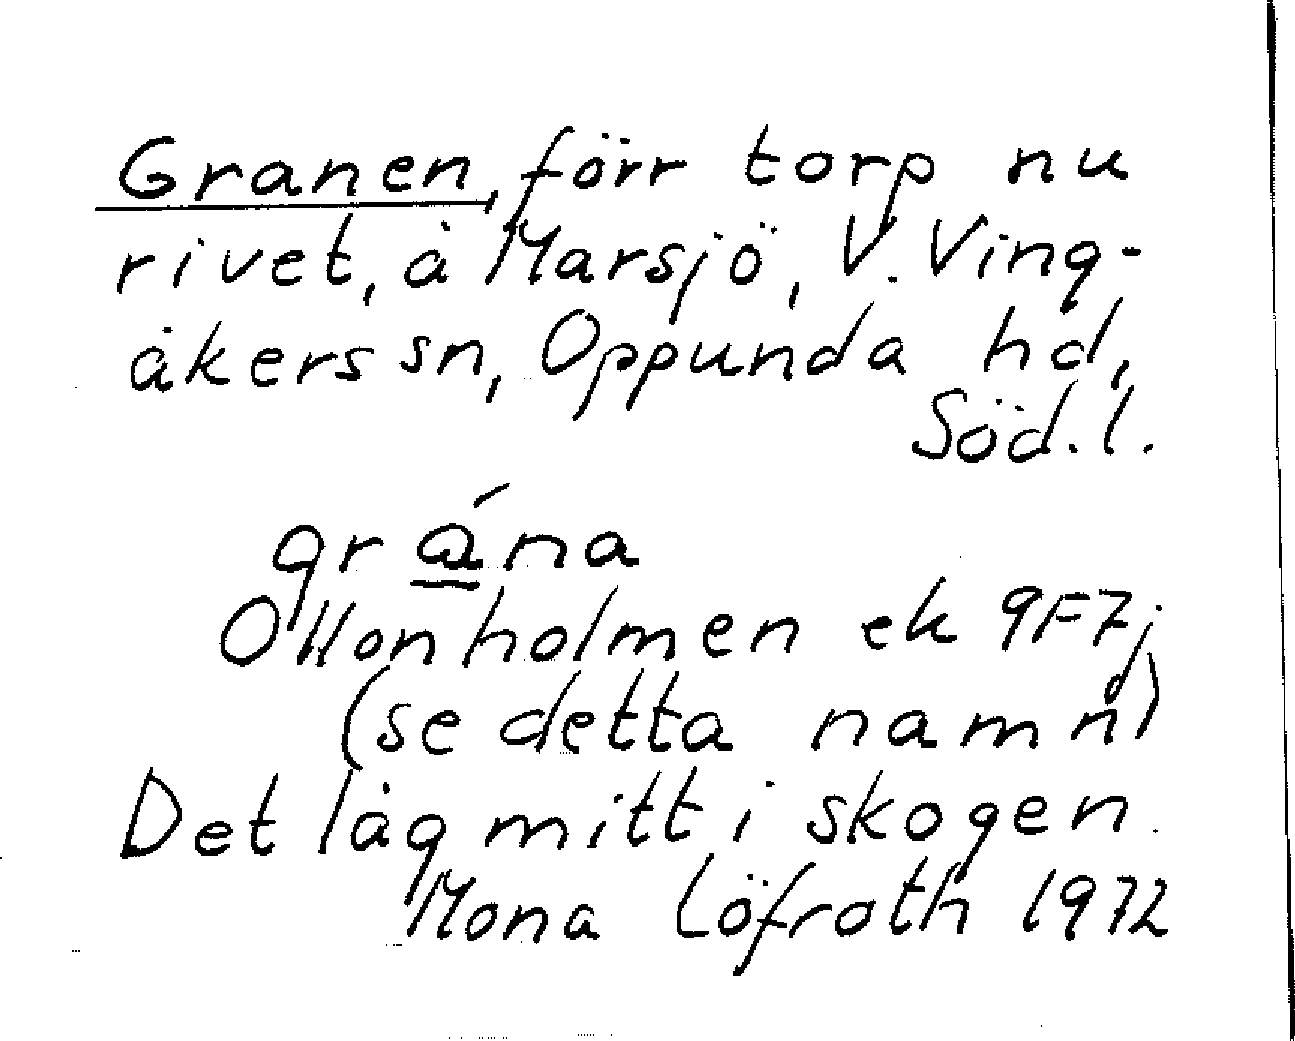 Granen, förr torp nu
rivet, å Marsjö, V. Ving-
åkers sn, Oppunda hd,
Söd.l.
grána
Ollonholmen ek 9F7j
(se detta namn)
Det låg mitt i skogen
Mona Löfroth 1972